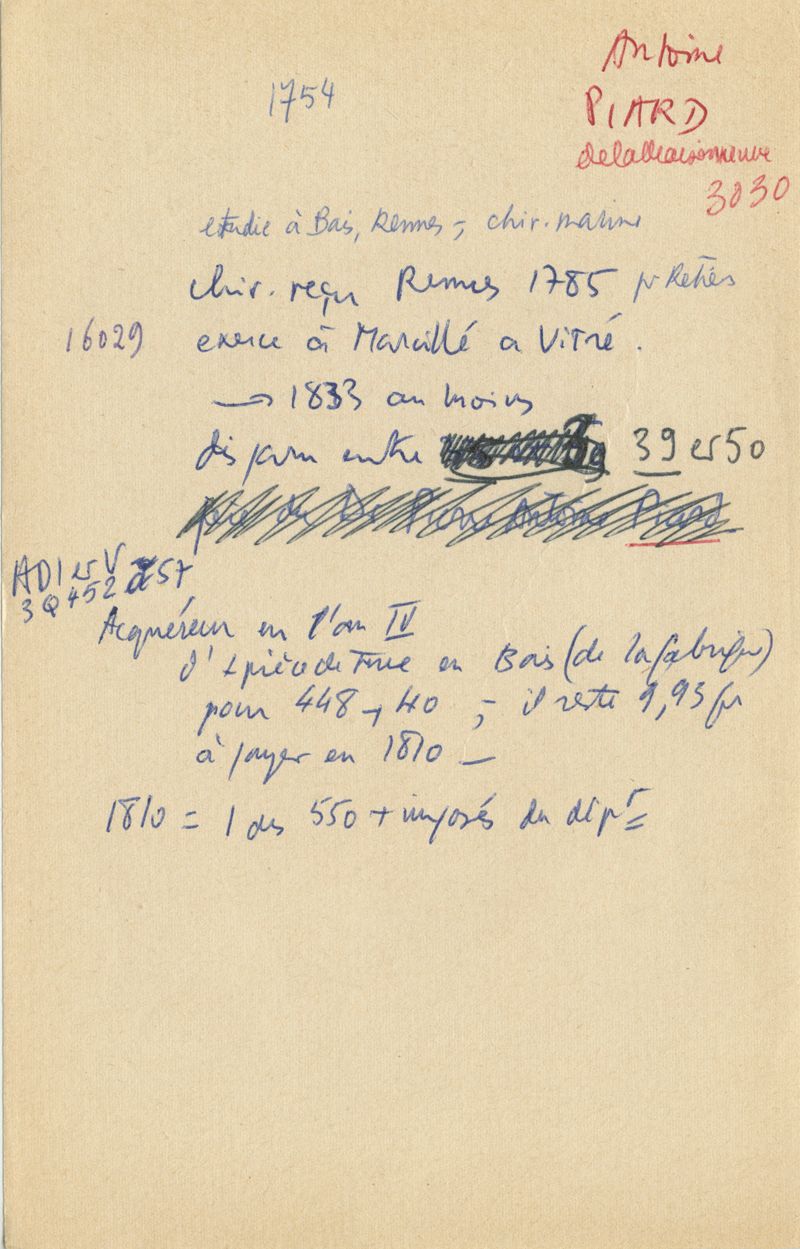 Antoine
1754
PIARD
delaMaisonneuve
3030
etudie à Bais, Rennes -; chir. marine
chir. reçu Rennes 1785 pr Retiers
16029
exerce à Marcillé a Vitré.
→ 1833 au moins
disparu entre 39 et 50
père du Dr Pierre Antoine Piard
ADI et V
3Q 452 d 57
Acquéreur en l'an IV
d'1 pièce de Terre en Bais (de la fabrique)
pour 448 → 40 -; il reste 9,93 fr
à payer en 1810 —
1810 = 1 des 550 + imposés du dépt